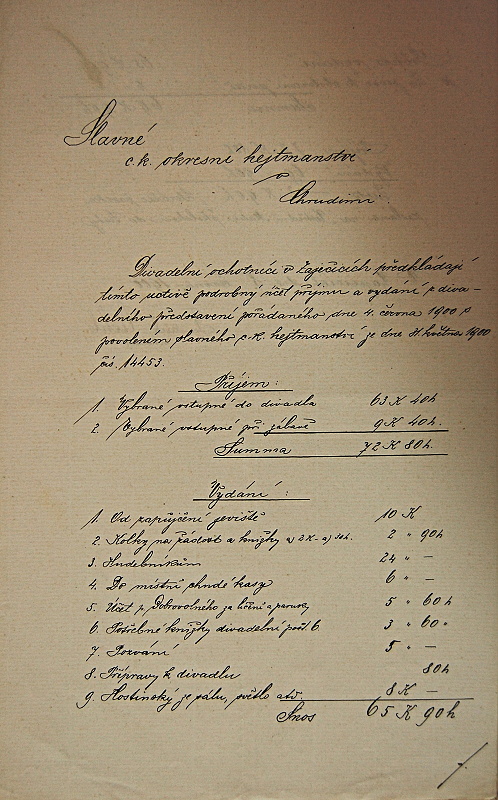 Slavné
c.k. okresní hejtmanství
v
Chrudimi.
Divadelní ochotníci v Zaječicích předkládají
tímto uctivě podrobný účet příjmu a vydání z diva-
delního představení pořádaného dne 4. června 1900 s
povolením slavného c.k. hejtmanství je dne 31. května 1900
čís. 14453.
Příjem:
1. Vybrané vstupné do divadla 63 K 40h
2. Vybrané vstupné při zábavě 9 K 40h.
Summa 72 K 80h.
Vydání:
1. Od zapůjčení jeviště 10 K
2. Kolky na žádost a knížky 2 " 90h
3. Hudebníkům 24 " —
4. Do místní chudé kasy 6 " —
5. Účet p. Dobrovolného za líčení a paruky 5 " 60h
6. Potřebné knížky divadelní počt 6. 3 " 60 "
7. Pozvání 5 " —
8. Přípravy k divadlu 80h
9. Hostinský je sálu, světlo atd. 8 K —
Snos 65 K 90h